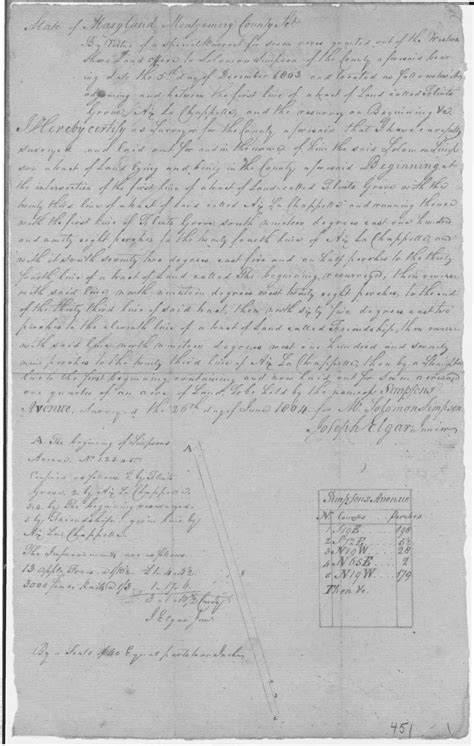 State of Maryland, Montgomery County Sct.
By Virtue of a Special Warrant for seven acres granted out of the Western
Shore Land Office to Solomon Simpson of the County aforesaid bearing
date the 5th day of December 1803 and located as follows
adjoining and between the first line of a tract of Land called Flints
Grove, Aix La Chappelle, and the resurvey on Beginning &c.
I Hereby certify as Surveyor for the County aforesaid that I have carefully
surveyed and laid out for and in the name of him the said Solomon Simpson
a tract of Land lying and being in the County aforesaid Beginning at
the intersection of the first line of a tract of Land called Flints Grove with the
twenty third line of a tract of land called Aix La Chappelle and running thence
with the first line of Flints Grove south nineteen degrees east one hundred
and ninety eight perches to the twenty fourth line of Aix La Chappelle, and
with it south seventy two degrees east five and an half perches to the thirty
fourth line of a tract of Land called The beginning, resurveyed, then
with said line, north nineteen degrees west twenty eight perches, to the end
of the thirty third line of said tract, then north sixty five degrees east two
perches to the eleventh line of a tract of Land called Friendship, then
with said line north nineteen degrees west one hundred and seventy
nine perches to the twenty third line of Aix La Chappelle, then by a straight
line to the first beginning containing and now laid out for seven acres and
one quarter of an acre of Land, To be held by the name of Simpsons
Avenue, surveyed the 26th day of June 1804. for Mr. Solomon Simpson
Joseph Elgar
A The beginning of Simpsons
Avenue. No. 1.2.3.4.5.
as follows 1 by Flints
Grove. 2 by Aix La Chappelle
3.4. by The beginning resurveyed
5 by Friendship given line by
Aix La Chappelle
The Improvements are as follows
13 apple Trees
3000
J. Elgar Jun.
By a Scale of 40 Equal parts to an Inch
Simpsons Avenue
No. Courses Perches
1 S19E 198
2 S72E 5½
3 N19W 28
4 N65E 2
5 N19W 179
Then &c.
451